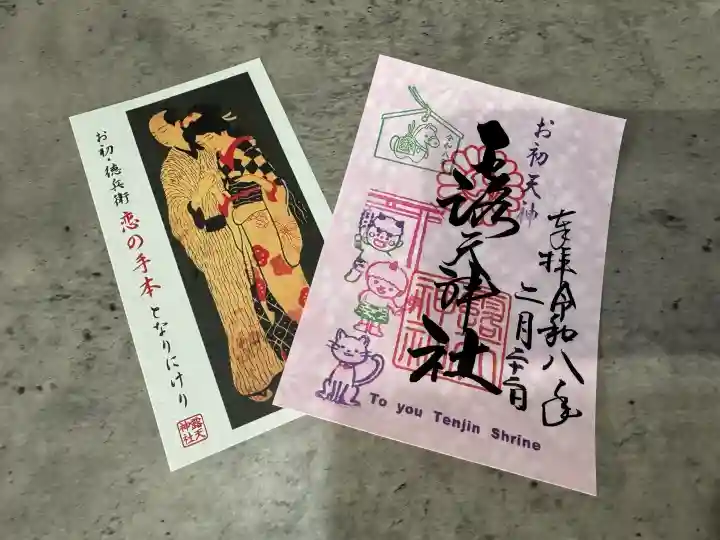 お初・徳兵衛
恋の手本
となりにけり
露天
神社
お初天神
奉拝 令和八年
二月二十二日
露天神社
To you Tenjin Shrine